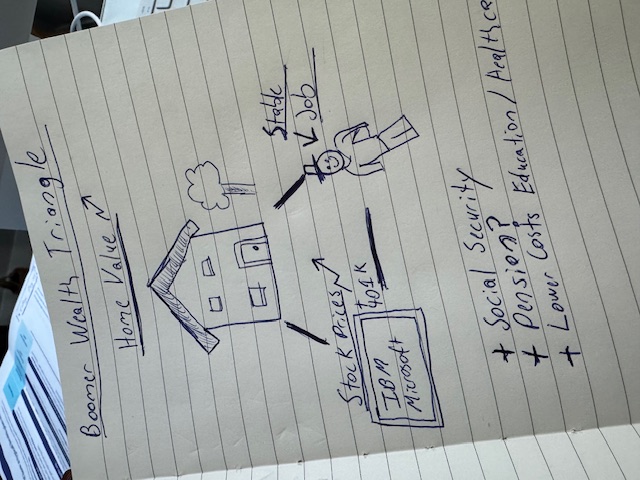 Boomer Wealth Triangle
Home Value
Stable
Job
Stock Prices
+ 401K
IBM
Microsoft
+ Social Security
+ Pension?
+ Lower Costs Education/Healthca